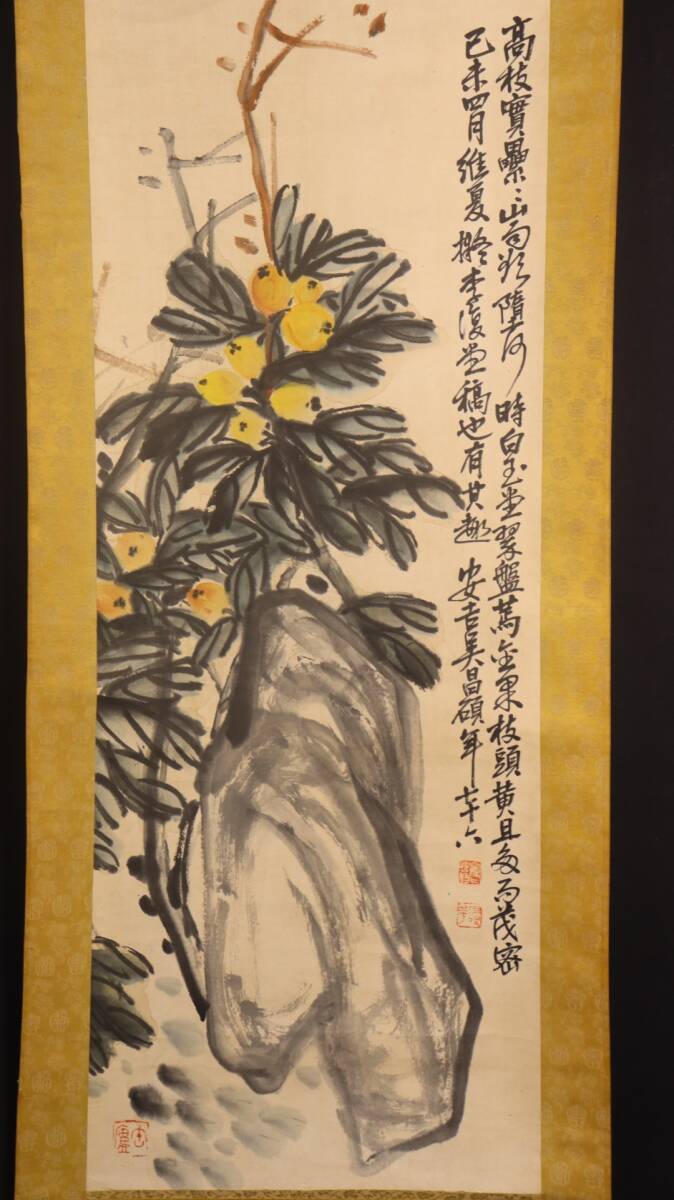 高枝實纍纍山雨欲墮 時白玉堂翠盤薦金果枝頭黄且多而茂密
己未四月維夏擬李復堂稿也有其趣 安吉吴昌碩年七十六